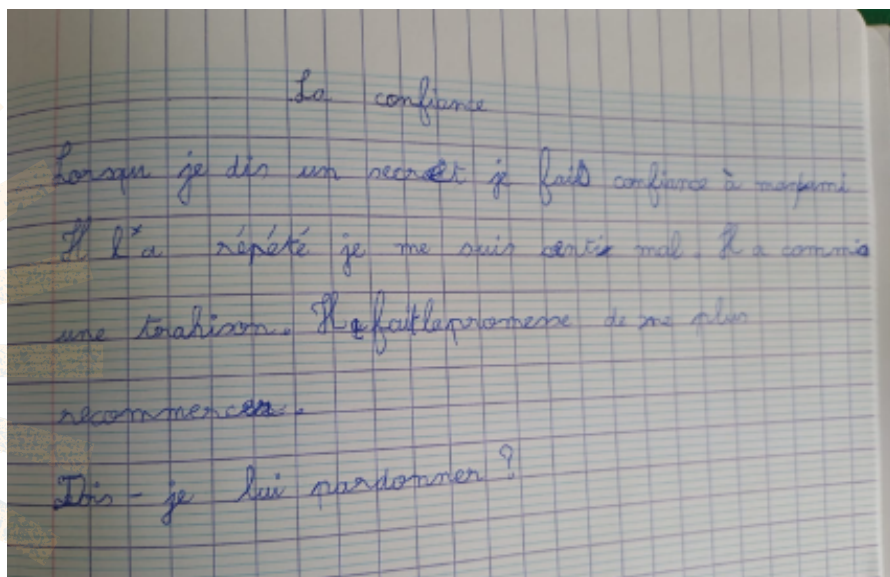 La confiance
Lorsqu je dis un secret je fais confiance à monami
Il l'a répété je me suis senti mal. Il a commis
une trahison. Il a faitlapromesse de ne plus
recommencer.
Dois-je lui pardonner ?